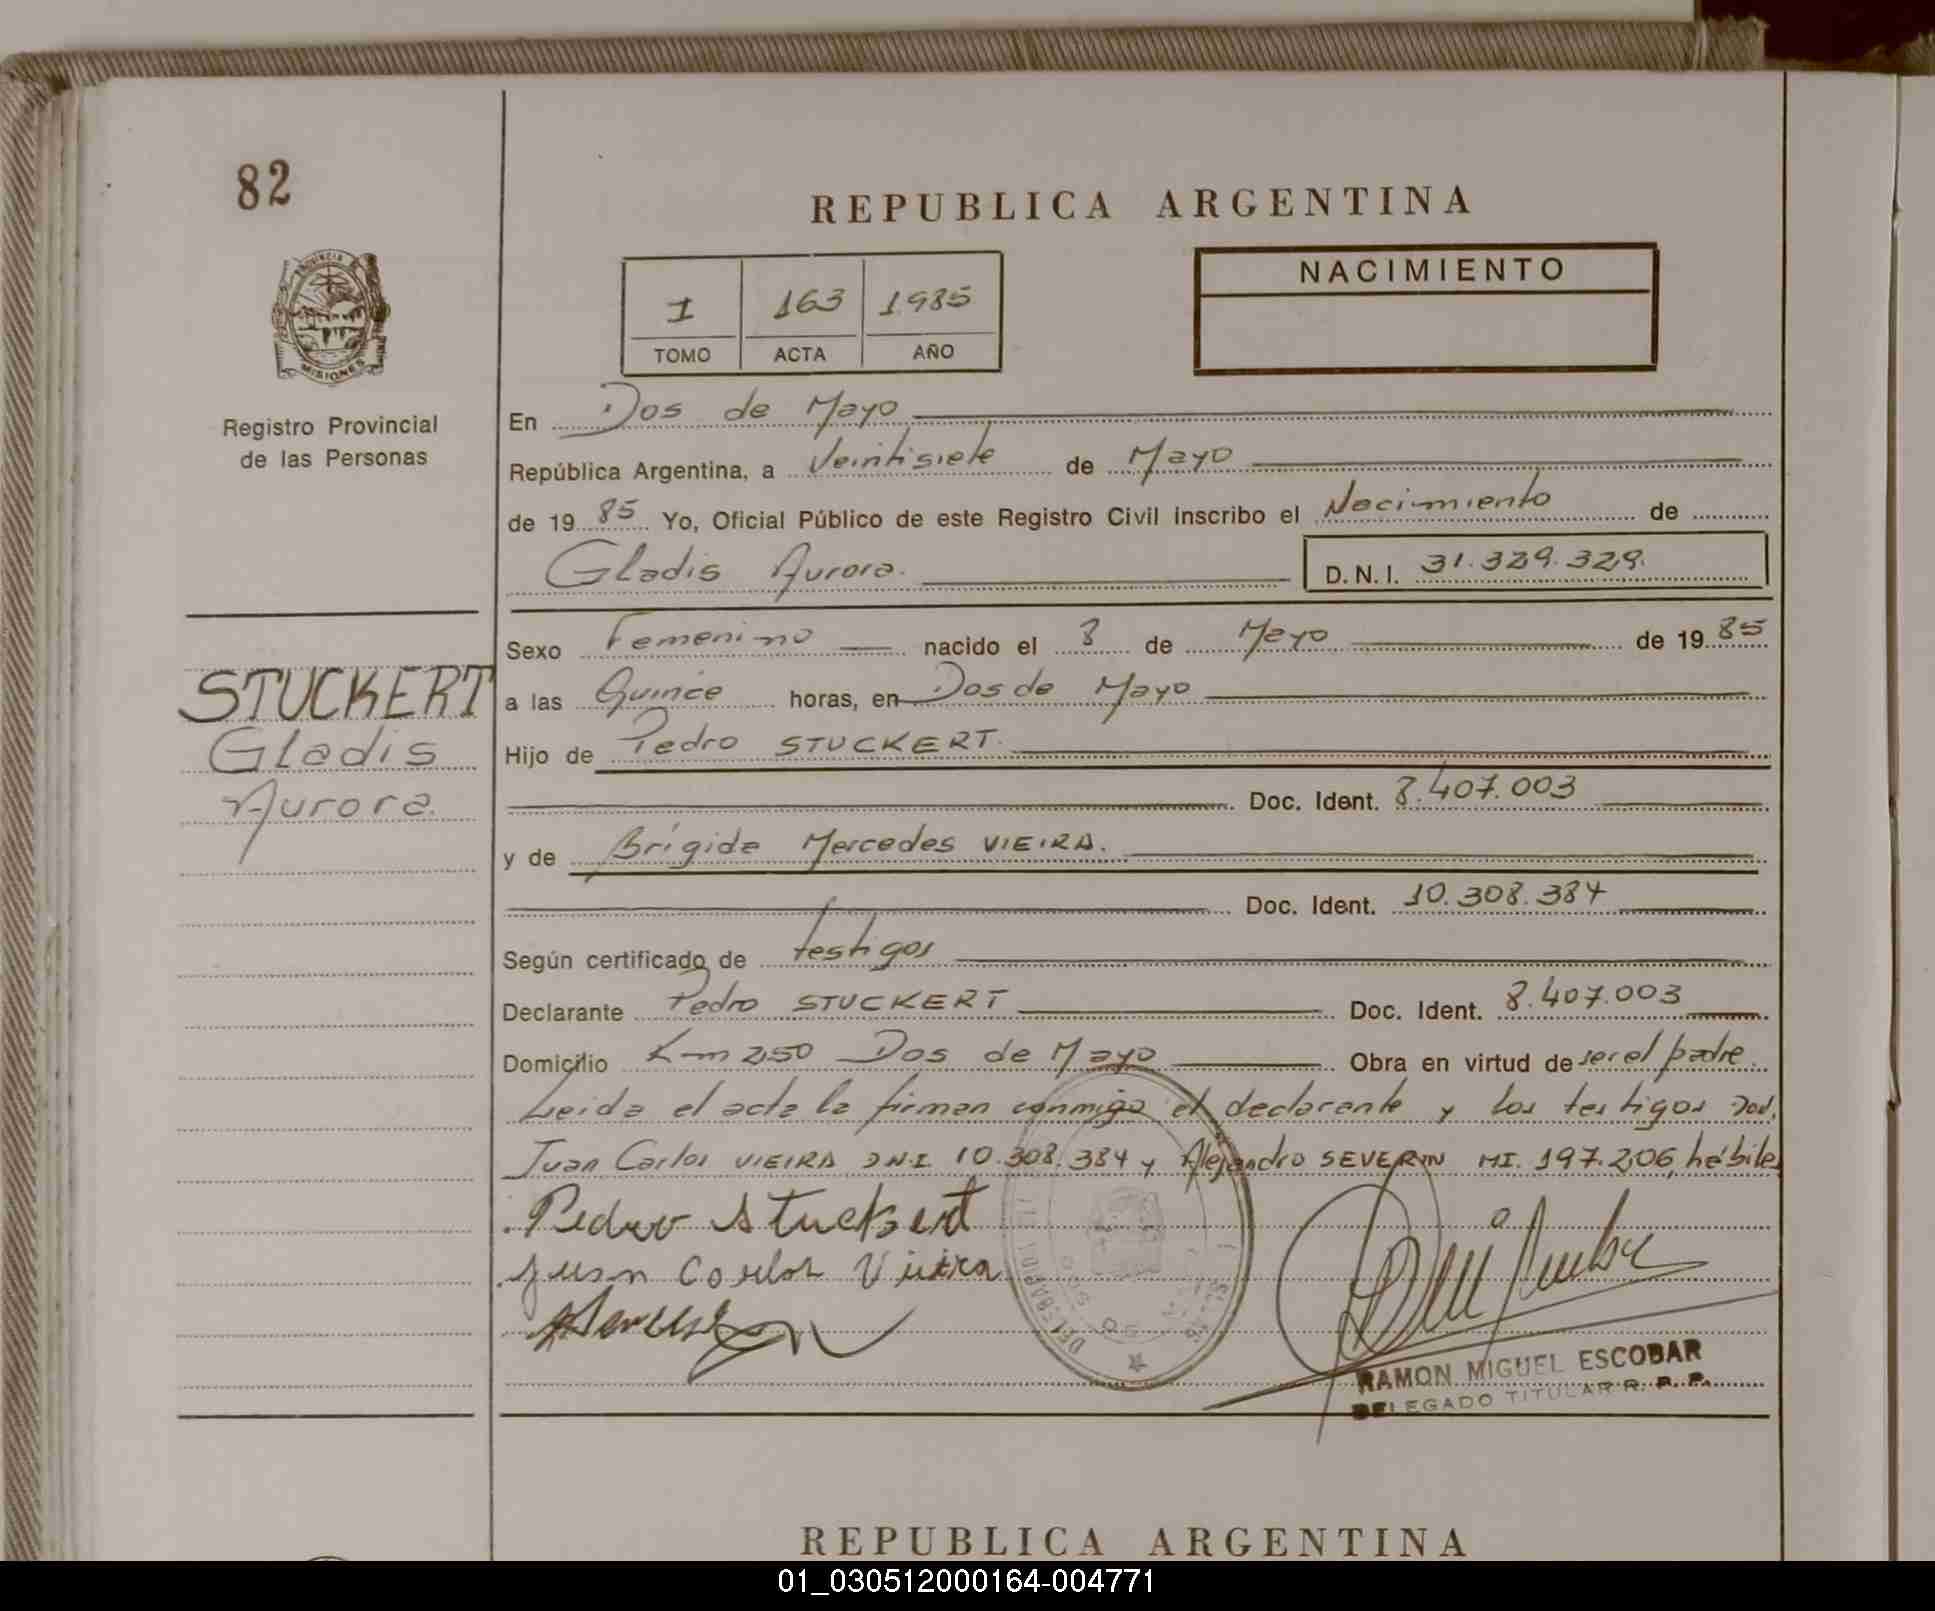 82
REPUBLICA ARGENTINA
NACIMIENTO
I 163 1985
TOMO ACTA AÑO
PROVINCIA DE
MISIONES
Registro Provincial
de las Personas
En Dos de Mayo
República Argentina, a Veintisiete de Mayo
de 1985 Yo, Oficial Público de este Registro Civil inscribo el Nacimiento de
Gladis Aurora. D.N.I. 31.329.329.
STUCKERT
Gladis
Aurora.
Sexo Femenino nacido el 8 de Mayo de 1985
a las Quince horas, en Dos de Mayo
Hijo de Pedro STUCKERT.
Doc. Ident. 8.407.003
y de Brígida Mercedes VIEIRA.
Doc. Ident. 10.308.384
Según certificado de testigos
Declarante Pedro STUCKERT Doc. Ident. 8.407.003
Domicilio Km 250 Dos de Mayo Obra en virtud de ser el padre.
Leida el acta la firman conmigo el declarante y los testigos
Juan Carlos VIEIRA D.N.I. 10.308.384 y Alejandro SEVERIN MI. 197.206, hábiles
Pedro Stuckert
Juan Carlos Vieira
RAMON MIGUEL ESCOBAR
DELEGADO TITULAR R. P. P.
REPUBLICA ARGENTINA
01_030512000164-004771